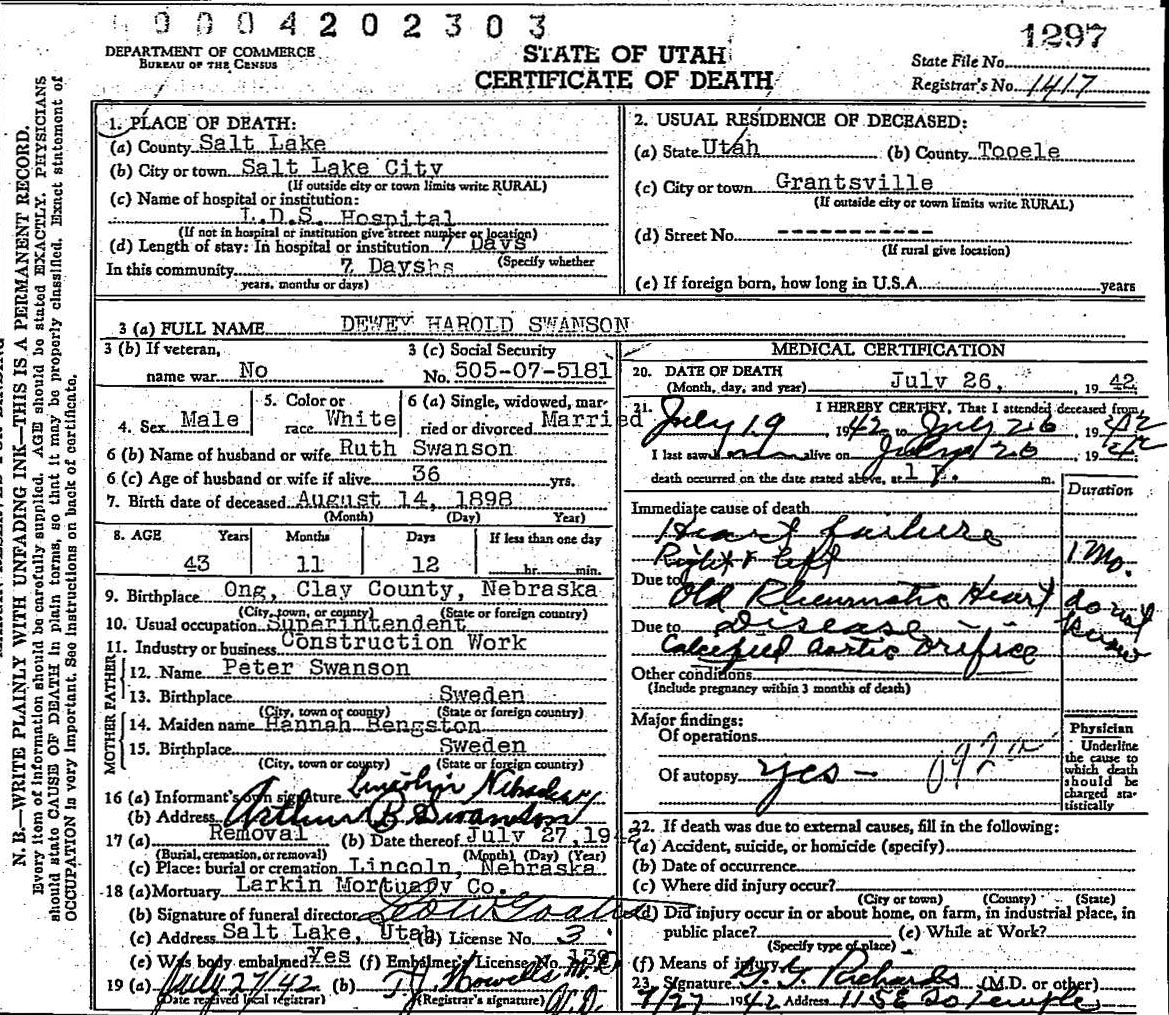 9 0 0 4 2 0 2 3 0 3
1297
DEPARTMENT OF COMMERCE
BUREAU OF THE CENSUS
STATE OF UTAH
CERTIFICATE OF DEATH
State File No.
Registrar's No. 1417
N. B.—WRITE PLAINLY WITH UNFADING INK—THIS IS A PERMANENT RECORD.
Every item of information should be carefully supplied. AGE should be stated EXACTLY. PHYSICIANS
should state CAUSE OF DEATH in plain terms, so that it may be properly classified. Exact statement of
OCCUPATION is very important. See instructions on back of certificate.
1. PLACE OF DEATH:
(a) County Salt Lake
(b) City or town Salt Lake City
(If outside city or town limits write RURAL)
(c) Name of hospital or institution:
L.D.S. Hospital
(If not in hospital or institution give street number or location)
(d) Length of stay: In hospital or institution 7 Days
(Specify whether
In this community 7 Days
years, months or days)
2. USUAL RESIDENCE OF DECEASED:
(a) State Utah (b) County Tooele
(c) City or town Grantsville
(If outside city or town limits write RURAL)
(d) Street No. -----------
(If rural give location)
(e) If foreign born, how long in U.S.A. years
3 (a) FULL NAME DEWEY HAROLD SWANSON
3 (b) If veteran,
name war No
3 (c) Social Security
No. 505-07-5181
4. Sex Male
5. Color or
race White
6 (a) Single, widowed, mar-
ried or divorced Married
6 (b) Name of husband or wife Ruth Swanson
6 (c) Age of husband or wife if alive 36 yrs.
7. Birth date of deceased August 14, 1898
(Month) (Day) Year)
8. AGE Years Months Days If less than one day
43 11 12 hr. min.
9. Birthplace Ong, Clay County, Nebraska
(City, town, or county) (State or foreign country)
10. Usual occupation Superintendent
11. Industry or business Construction Work
FATHER
12. Name Peter Swanson
13. Birthplace Sweden
(City, town or county) (State or foreign country)
MOTHER
14. Maiden name Hannah Bengston
15. Birthplace Sweden
(City, town or county) (State or foreign country)
16 (a) Informant's own signature Lincoln Nebraska
(b) Address Arthur B Swanson
17 (a) Removal (b) Date thereof July 27, 1942
(Burial, cremation, or removal) (Month) (Day) (Year)
(c) Place: burial or cremation Lincoln, Nebraska
18 (a) Mortuary Larkin Mortuary Co.
(b) Signature of funeral director
(c) Address Salt Lake, Utah (d) License No. 3
(e) Was body embalmed? Yes (f) Embalmer's License No. 139
19 (a) July 27/42 (b) T J Howells M.D.
(Date received local registrar) (Registrar's signature)
MEDICAL CERTIFICATION
20. DATE OF DEATH
(Month, day, and year) July 26, , 19 42
21. I HEREBY CERTIFY, That I attended deceased from
July 19 1942 to July 26, 1942
I last saw him alive on July 26 1942
death occurred on the date stated above, at 1 P. m.
Duration
Immediate cause of death
Heart failure
Right & Left 1 Mo.
Due to
Old Rheumatic Heart do not
Due to Disease know
Calcified aortic orifice
Other conditions
(Include pregnancy within 3 months of death)
Major findings:
Of operations
Of autopsy yes - 092a
Physician
Underline
the cause to
which death
should be
charged sta-
tistically
22. If death was due to external causes, fill in the following:
(a) Accident, suicide, or homicide (specify)
(b) Date of occurrence
(c) Where did injury occur?
(City or town) (County) (State)
(d) Did injury occur in or about home, on farm, in industrial place, in
public place? (e) While at Work?
(Specify type of place)
(f) Means of injury
23. Signature G. G. Richards (M.D. or other)
7/27 1942 Address 115 E So Temple